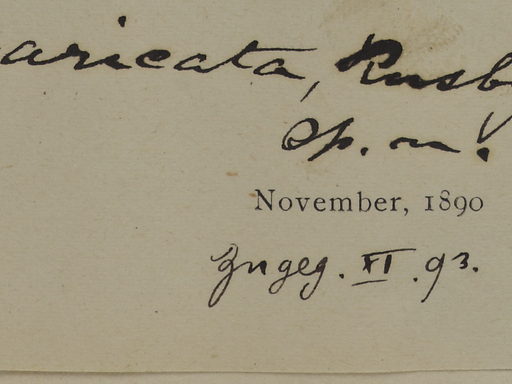 aricata, Rusby
sp. n.
November, 1890
Zugeg. XI. 93.